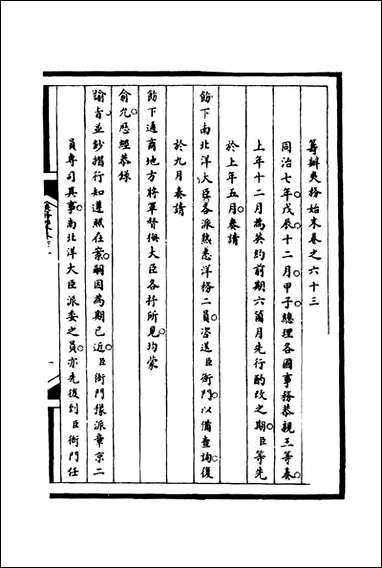 籌辦夷務始末卷之六十三
同治七年戊辰十二月甲子總理各國事務恭親王等奏
上年十二月為英約前期六箇月先行酌改之期臣等先
於上年五月奏請
飭下南北洋大臣各派熟悉洋務二員咨送臣衙門以備查詢復
於九月奏請
飭下通商地方將軍督撫大臣各抒所見均蒙
俞允恩經恭錄
諭旨並鈔摺行知遵照在案嗣因為期已近臣衙門揀派章京二
員專司其事南北洋大臣派委之員亦先後到臣衙門任